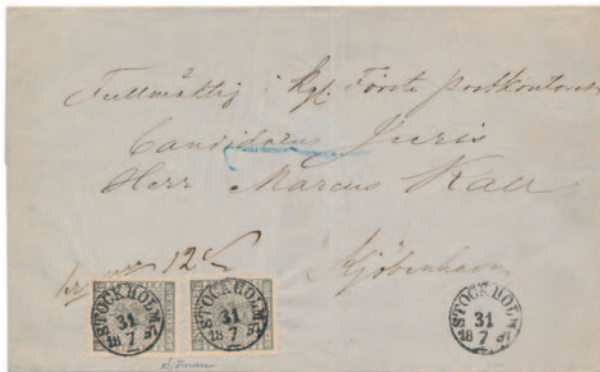 Fullmäktig i Kgl. Förste Postkontoret
Candidatus Juris
Herr Marcus Kall
12
Kjöbenhavn
STOCKHOLM
31
18 7 57
STOCKHOLM
31
18 7 57
STOCKHOLM
31
18 7 57
Sjöman